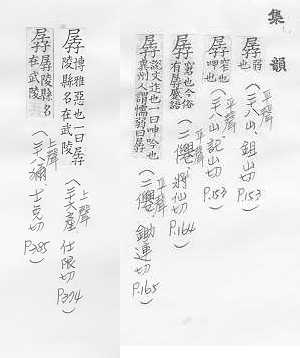 集韻
孱 弱也
(平聲 二十八山、鉏山切 P.153)
孱 窄也呻也
(平聲 二十八山、記山切 P.153)
孱 窮也今俗有孱㒗語
(平聲 二僊、將仙切 P.164)
孱 說文迮也一曰呻吟也冀州人謂懦弱曰孱
(平聲 二僊、鋤連切 P.165)
孱 博雅惡也一曰孱陵縣名在武陵
(上聲 二十六產 仕限切 P.374)
孱 孱陵縣名在武陵
(上聲 二十八獮、士免切 P.385)